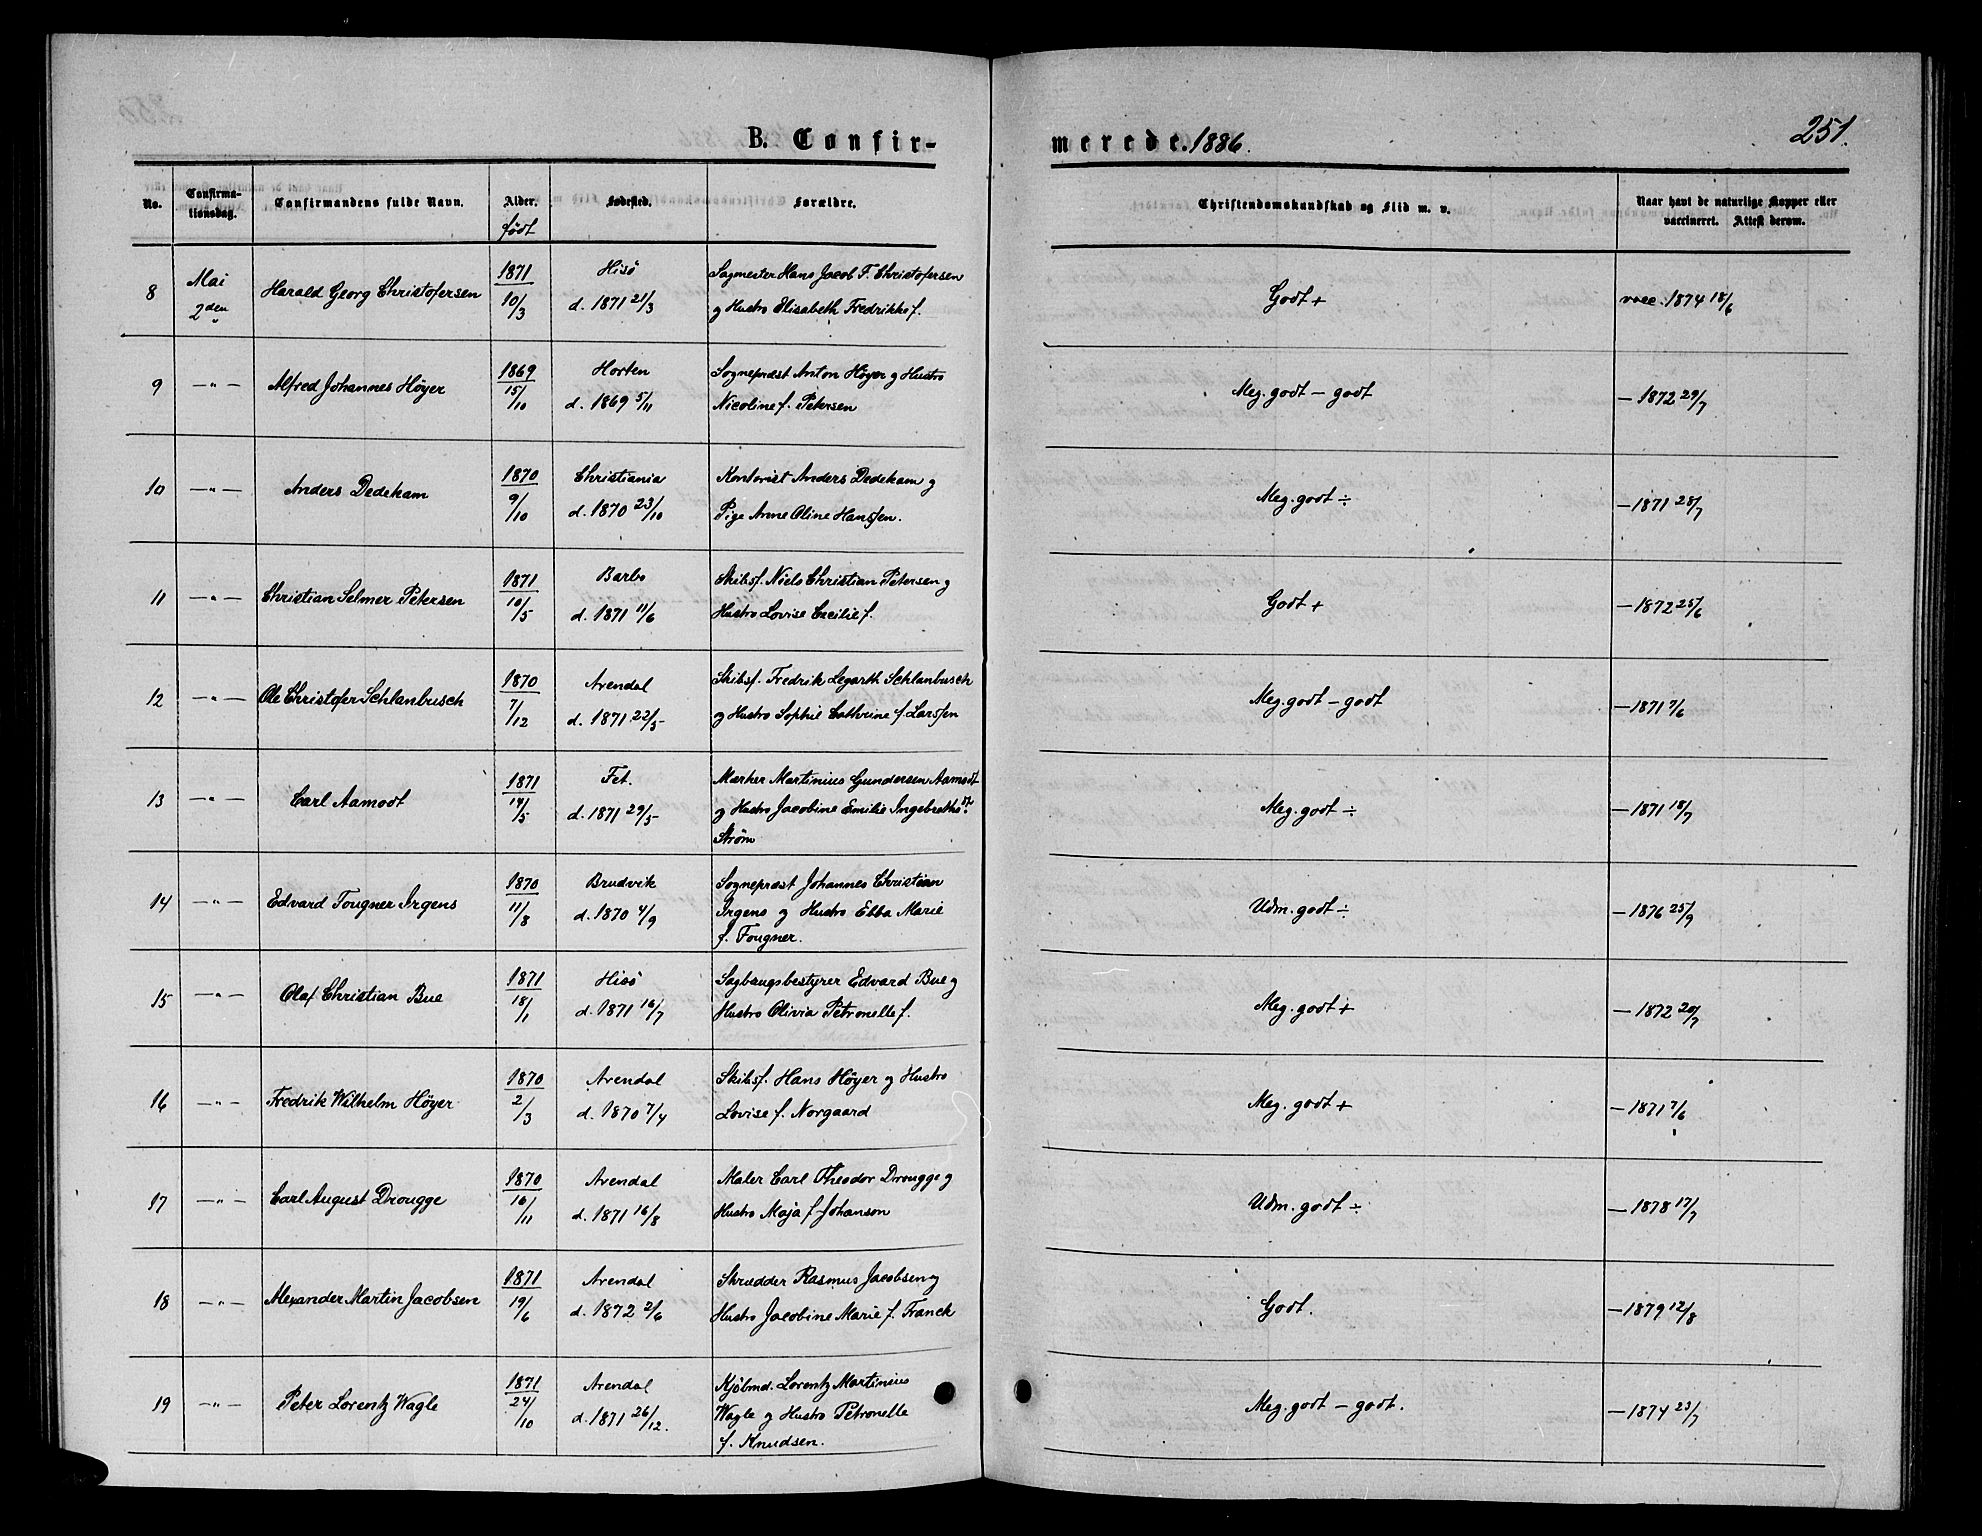 B. Confir- merede. 1886. 251.
No. Confirma-tionsdag. Confirmandens fulde Navn. Alder. født Fødested. Forældre. Christendomskundskab og Flid m. v. Naar havt de naturlige Kopper eller vaccineret. Attest derom.
8 Mai 2den Harald Georg Christofersen 1871 10/3 Hisö d. 1871 21/3 Sagmester Hans Jacob F. Christofersen
og Hustro Elisabeth Fredrikke f. Godt + vacc. 1874 18/6
9 —"— Alfred Johannes Höyer 1869 15/10 Horten d. 1869 5/11 Sognepræst Anton Höyer og Hustro
Nicoline f. Petersen Meg. godt — godt — 1872 29/7
10 —"— Anders Dedekam 1870 9/10 Christiania d. 1870 23/10 Kontorist Anders Dedekam og
Pige Anne Oline Hanssen. Meg. godt ÷ — 1871 28/7
11 —"— Christian Selmer Petersen 1871 10/5 Barbo d. 1871 11/6 Skibsf. Niels Christian Petersen og
Hustro Lovise Cecilie f. Godt + — 1872 25/6
12 —"— Ole Christofer Schlanbusch 1870 7/12 Arendal d. 1871 22/5 Skibsf. Fredrik Legarth Schlanbusch
og Hustro Sophie Cathrine f. Larssen Meg. godt — godt — 1871 7/6
13 —"— Carl Aamodt 1871 14/5 Fet. d. 1871 29/5 Mærker Martinius Gundersen Aamodt
og Hustro Jacobine Emilie Ingebreths dr.
Strøm Meg. godt ÷ — 1871 18/7
14 —"— Edvard Fougner Irgens 1870 11/8 Brudvik d. 1870 4/9 Sognepræst Johannes Christian
Irgens og Hustro Ebba Marie
f. Fougner. Udm. godt ÷ — 1876 25/9
15 —"— Olaf Christian Bue 1871 18/1 Hisö d. 1871 16/7 Sagbrugsbestyrer Edvard Bue og
Hustro Olivia Petronelle f. Meg. godt + — 1872 20/7
16 —"— Fredrik Wilhelm Höyer 1870 2/3 Arendal d. 1870 7/4 Skibsf. Hans Höyer og Hustro
Lovise f. Norgaard Meg. godt + — 1871 7/6
17 —"— Carl August Drougge 1870 16/11 Arendal d. 1871 16/8 Maler Carl Theodor Drougge og
Hustro Maja f. Johanson Udm. godt ÷ — 1878 17/7
18 —"— Alexander Martin Jacobsen 1871 19/6 Arendal d. 1872 2/6 Skrædder Rasmus Jacobsen og
Hustro Jacobine Marie f. Franck Godt. — 1879 12/8
19 —"— Peter Lorentz Wagle 1871 24/10 Arendal d. 1871 26/12. Kjöbmd. Lorentz Martinius
Wagle og Hustro Petronelle
f. Knudsen. Meg. godt — godt. — 1874 23/7